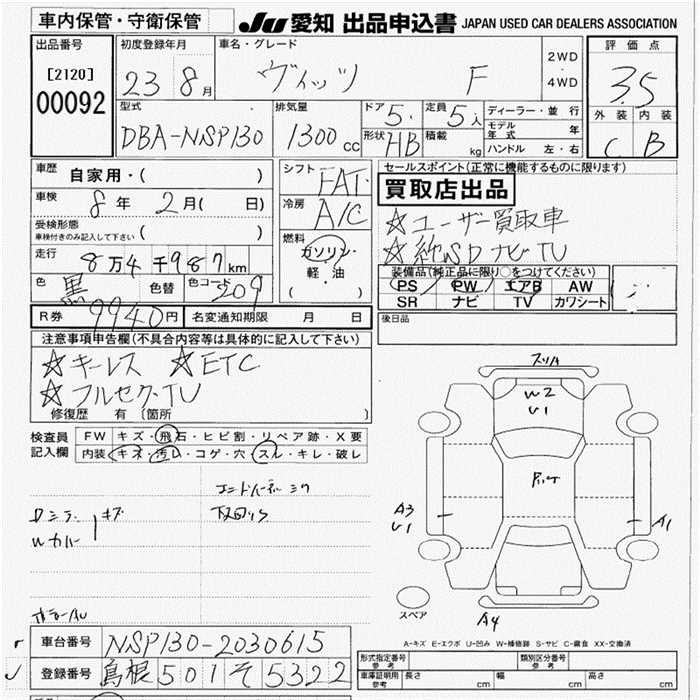 車内保管・守衛保管
JU 愛知 出品申込書 JAPAN USED CAR DEALERS ASSOCIATION
出品番号 初度登録年月 車名・グレード 評価点
[2120] 23 8月 ヴィッツ F 2WD・4WD 3.5
00092
型式 排気量 ドア 5 定員 5人 ディーラー・並行 外装 内装
DBA-NSP130 1300cc 形状 HB 積載 kg モデル年式 年 C B
ハンドル 左・右
車歴 自家用・( ) シフト FAT セールスポイント(正常に機能するものに限ります)
買取店出品
車検 8年 2月( 日) 冷房 A/C ☆ユーザー買取車
受検形態 車検付きのみ記入して下さい ( ) 燃料 ガソリン・軽・油 ( ) ☆純SDナビTV
走行 8万4千987km 装備品(純正品に限り○をつけてください)
色 黒 色替 色コード 209 PS PW エアB AW
SR ナビ TV カワシート
R券 9940円 名変通知期限 月 日 後日品
注意事項申告欄(不具合内容等は具体的に記入して下さい)
☆キーレス ☆ETC
☆フルセグ・TV
修復歴 有 〔箇所 〕
検査員記入欄 FW キズ・飛石・ヒビ割・リペア跡・X要
内装 キズ・汚レ・コゲ・穴・スレ・キレ・破レ
スリ入
W2
U1
A3
U1
A1
キズ
Wカバー
スペア
A4
A-キズ E-エクボ U-凹み W-補修跡 S-サビ C-腐食 XX-交換済
車台番号 NSP130-2030615 形式指定番号 参考 類別区分番号 参考
登録番号 島根 501 そ 5322 車庫証明用 参考 長さ cm 幅 cm 高さ cm